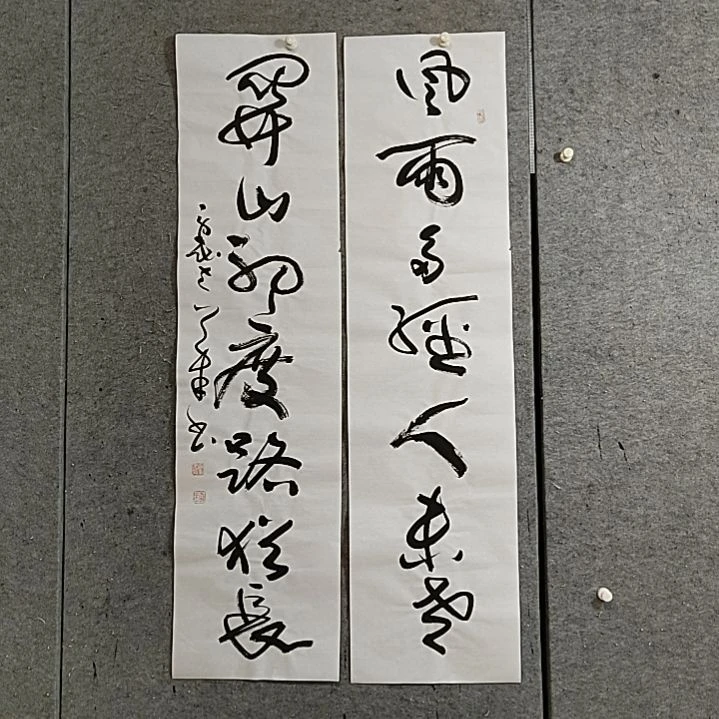 風雨多經人未老
關山初度路猶長